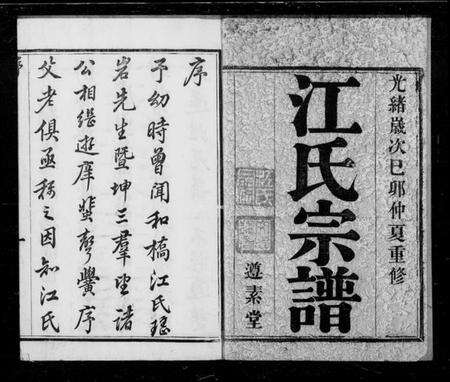 光緒嵗次巳卯仲夏重修
江氏宗譜
遵素堂
序
予幼時曾聞和橋江氏
岩先生暨坤三羣望諸
公相繼遊庠蜚聲黌序
父老俱亟稱之因知江氏